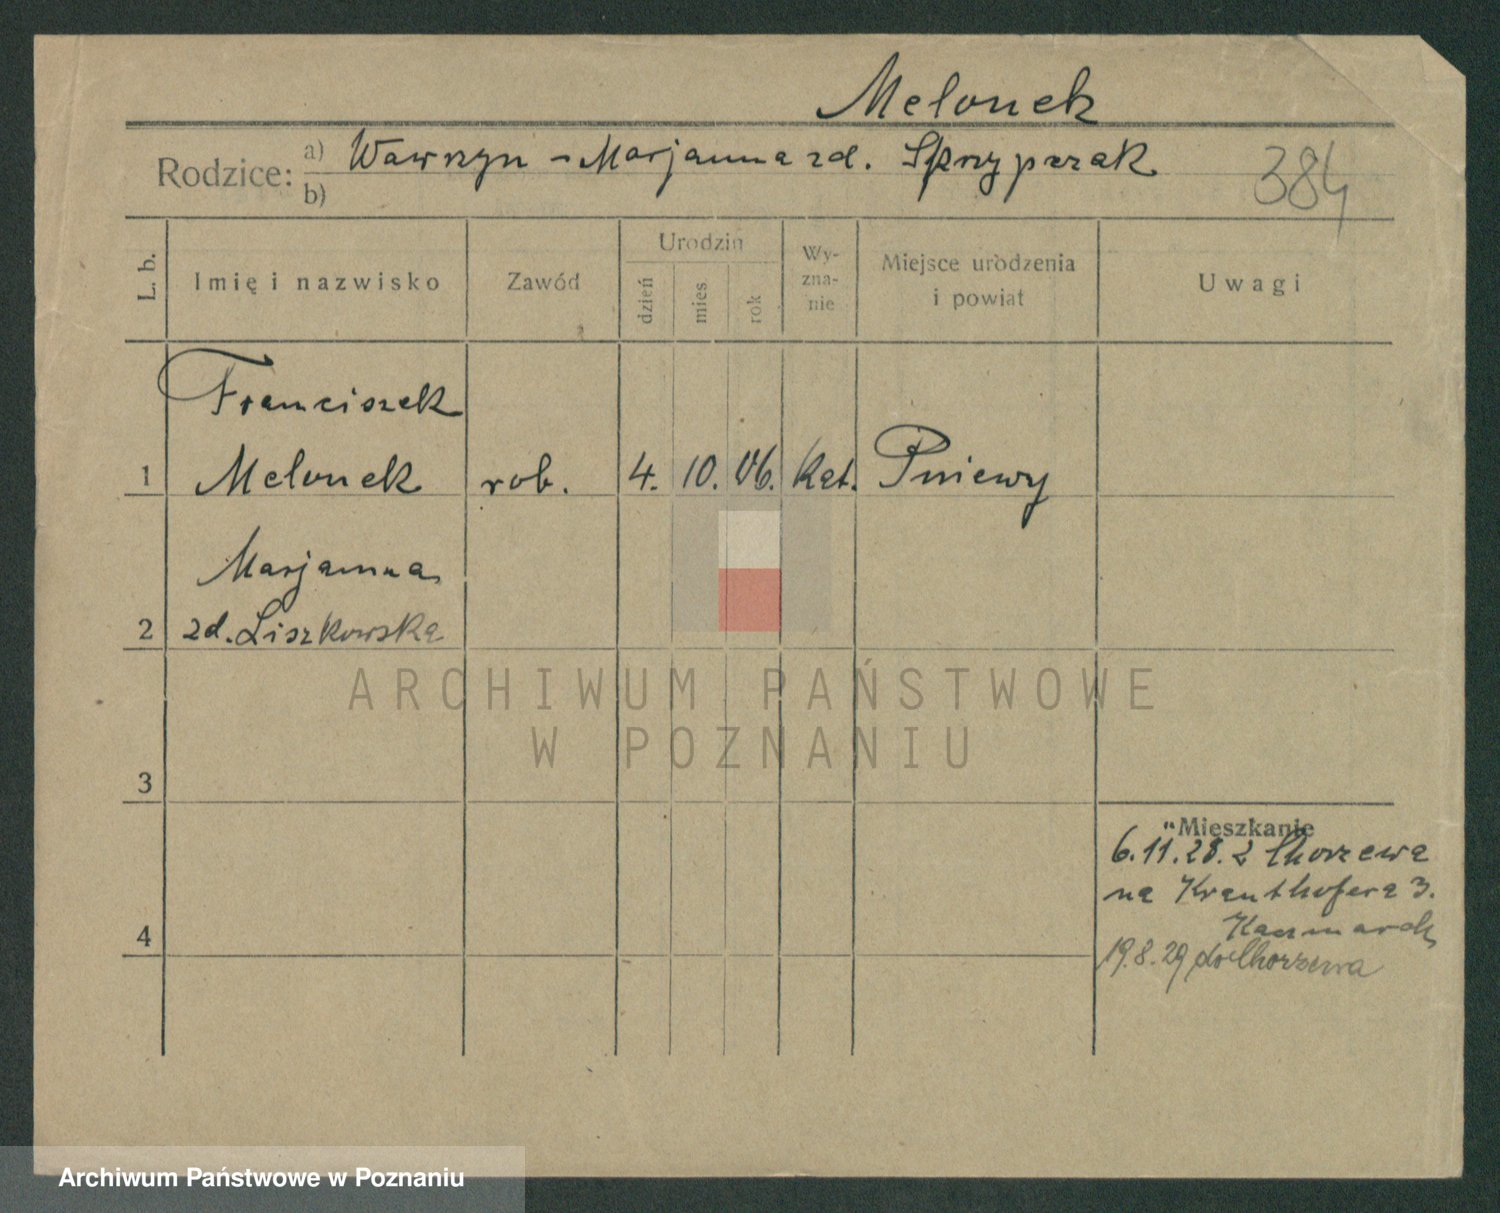 Melonek
Rodzice: a) Wawrzyn - Marjanna zd. Skrzypczak
b)
384
L. b.
Imię i nazwisko
Zawód
Urodzin
dzień
mies.
rok
Wy-
zna-
nie
Miejsce urodzenia
i powiat
Uwagi
Franciszek
1 Melonek rob. 4. 10. 06. kat. Pniewy
Marjanna
2 zd. Liszkowska
ARCHIWUM PAŃSTWOWE
W POZNANIU
3
Mieszkanie
6.11.28. z Chorzewa
na Kranthofera 3.
4
Kaczmarek
19.8.29 do Chorzewa
Archiwum Państwowe w Poznaniu